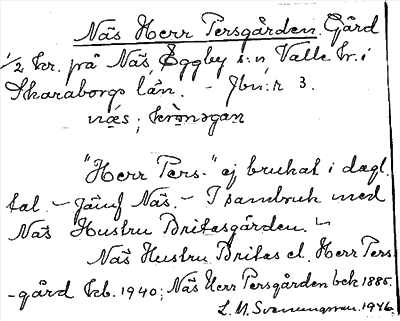 Näs Herr Persgården. Gård
1/2 kr. på Näs, Eggby s:n, Valle hr. i
Skaraborgs län. - Jbn:r 3.
næs; krònəgan
"Herr Pers-" ej brukat i dagl.
tal. - Jämf Näs. - I sambruk med
Näs Hustru Britasgården.
Näs Hustru Britas el. Herr Pers
-gård kb. 1940; Näs Herr Persgården bek 1885.
L. M. Svenungsson. 1946.